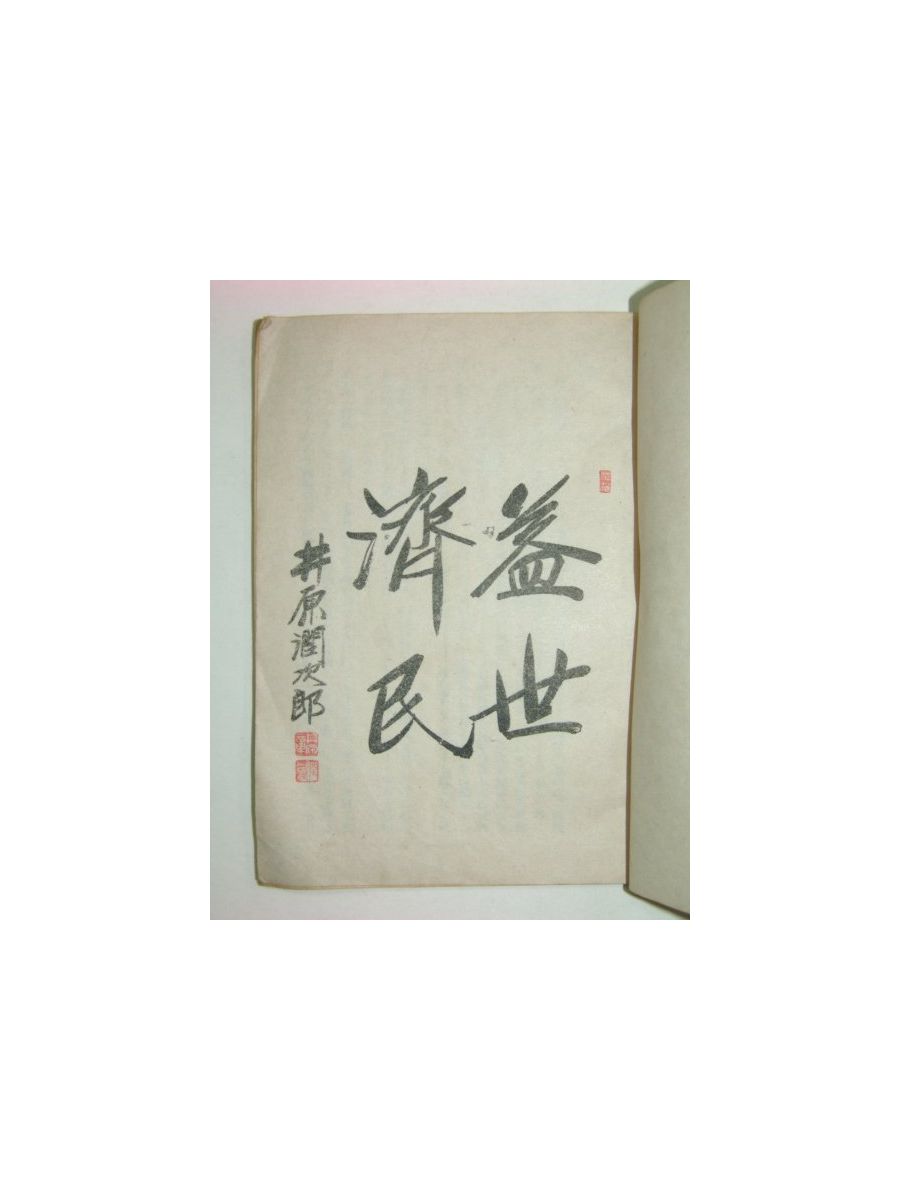 益世
濟民
井原潤次郎